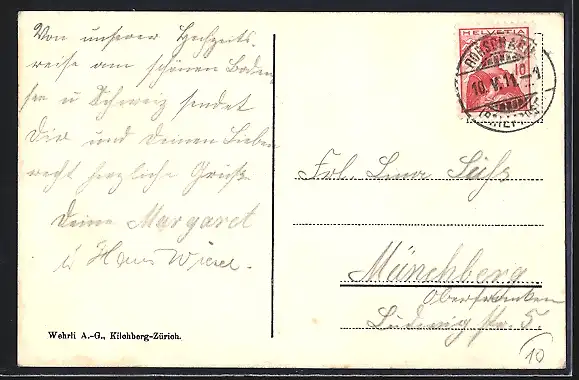 Von unserer Hochzeits-
reise am schönen Boden
see u Schweiz sendet
Dir und Deinen Lieben
recht herzliche Grüße
Deine Margaret
u Hans
Wehrli A.-G., Kilchberg-Zürich.
HELVETIA
RORSCHACH
10.V.11
Frl. Lina
Münchberg
Oberfranken
Ludwigstr. 5.
10